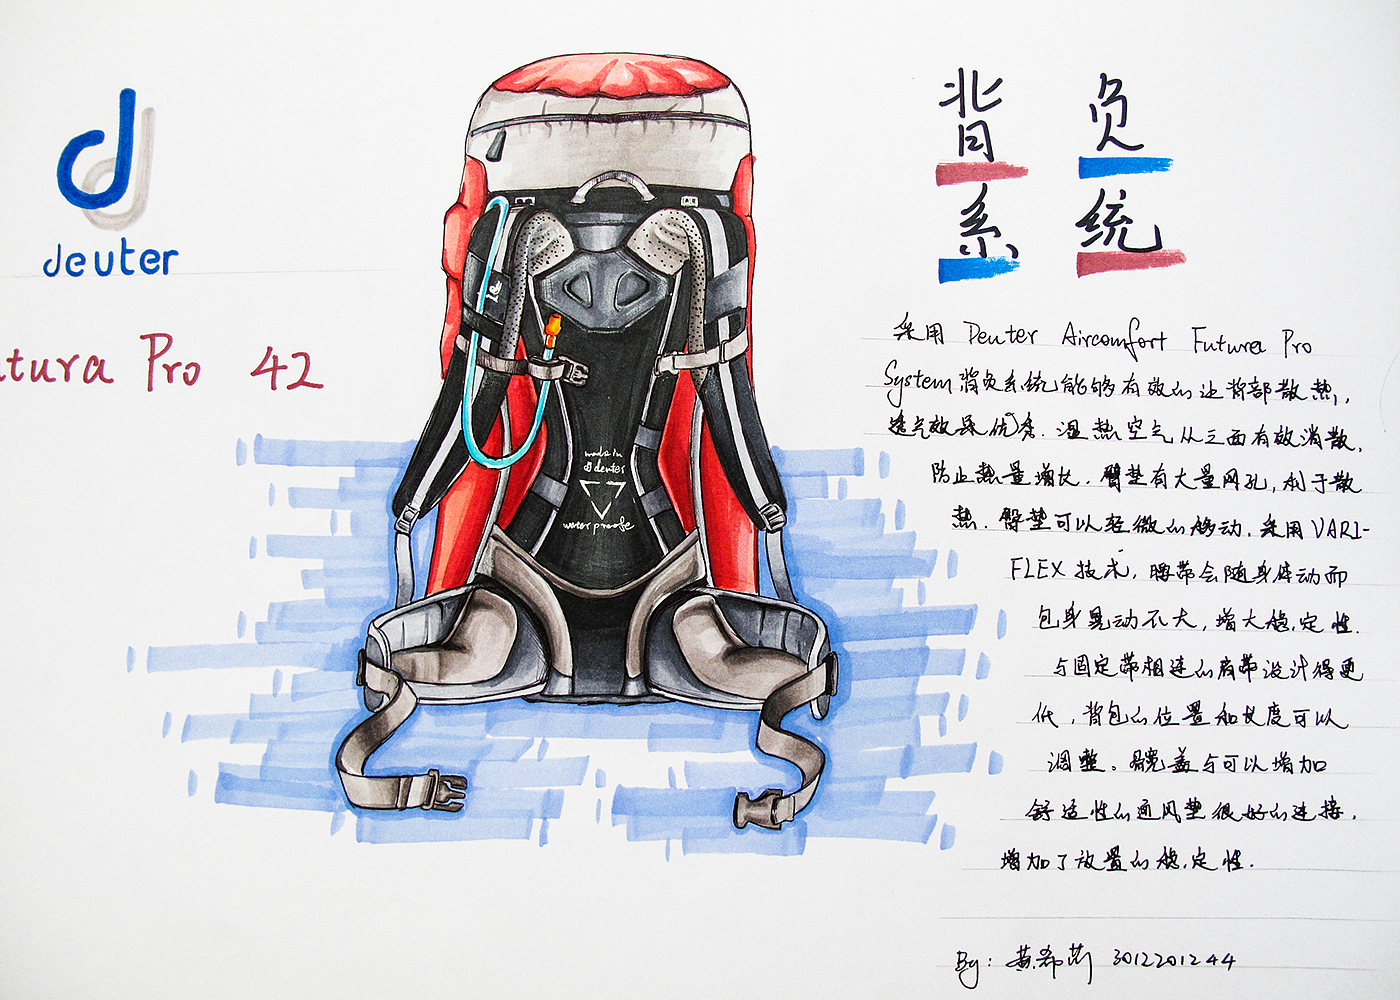 deuter
tura Pro 42
made in
deuter
water proofe
背负
系统
采用 Deuter Aircomfort Futura Pro
System背负系统能够有效的让背部散热,
透气效果优秀.湿热空气从三面有效消散,
防止热量增长.臀垫有大量网孔,利于散
热.臀垫可以轻微的移动.采用VARI-
FLEX技术,腰带会随身体动而
包身晃动不大,增大稳定性.
与固定带相连的肩带设计得更
低,背包的位置和长度可以
调整。髋盖与可以增加
舒适性的通风垫很好的连接,
增加了放置的稳定性.
By: 黄希 3012201244